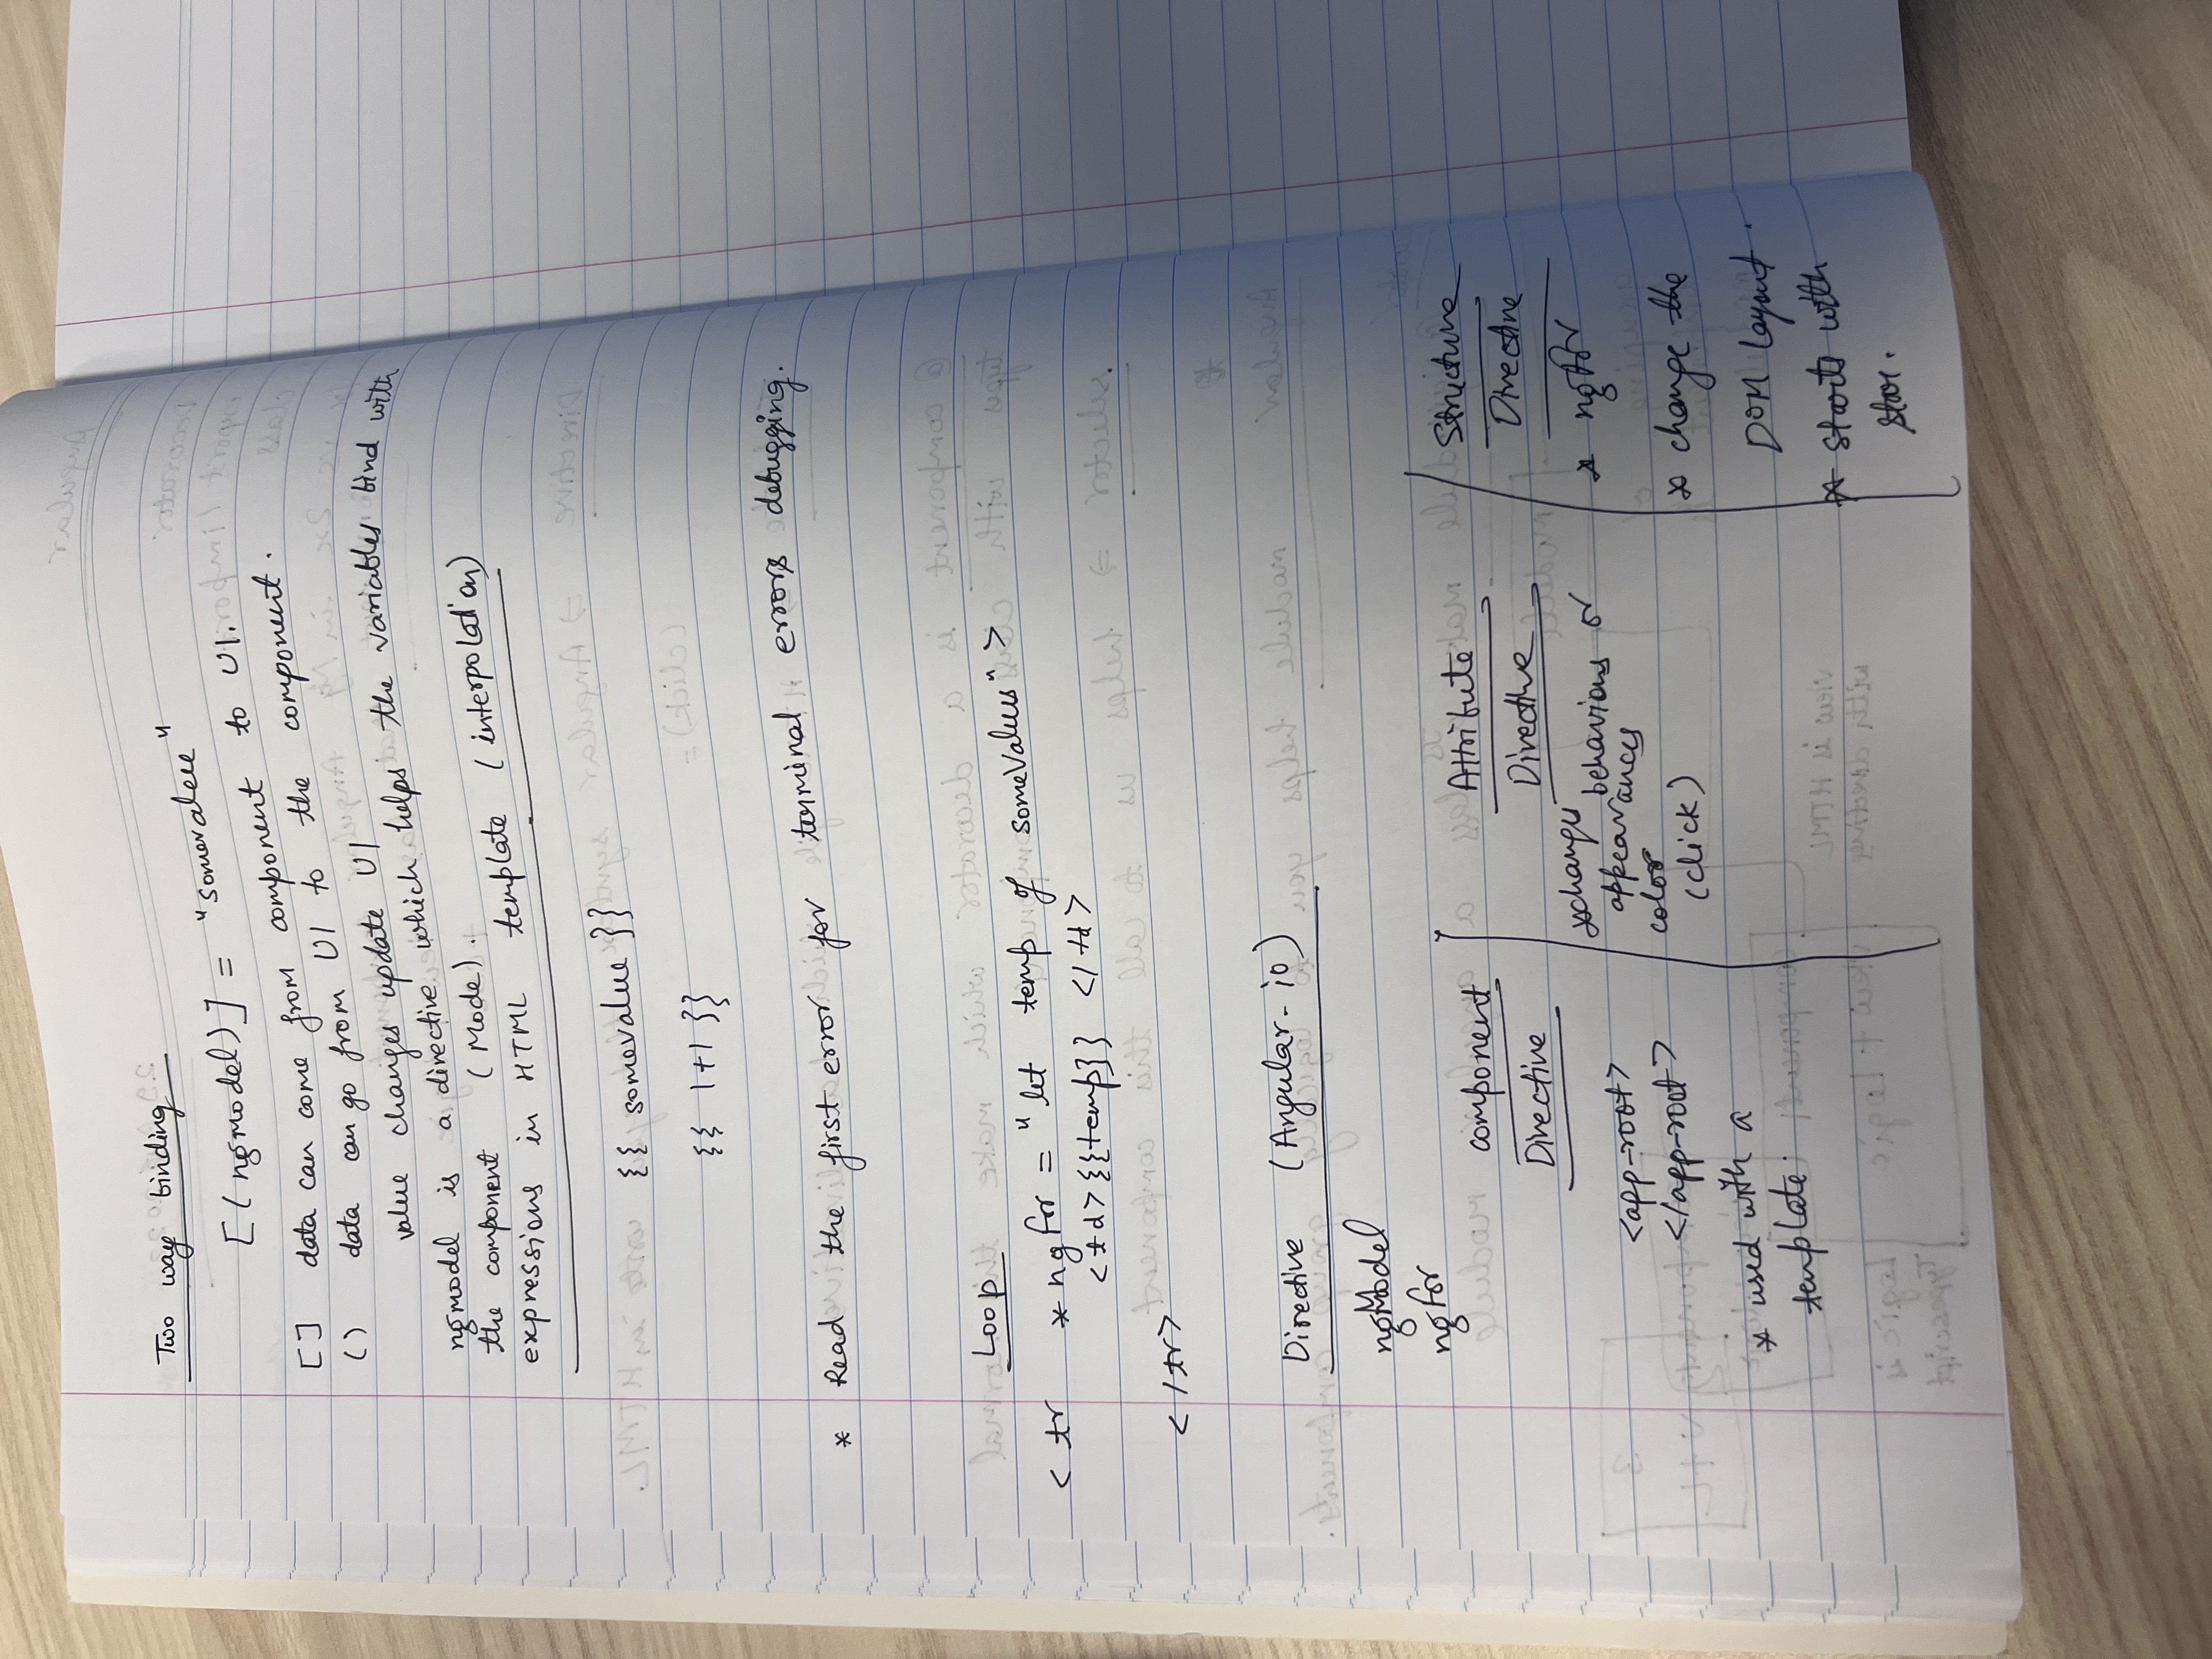 Two way binding
[(ngmodel)] = "somevalue"
[] data can come from component to UI.
() data can go from UI to the component.
value changes update UI
ngmodel is a directive which helps the variables bind with
the component (Mode).
expressions in HTML template (interpolation)
{{ somevalue }}
{{ 1+1 }}
* Read the first error for terminal errors debugging.
Loop
<tr *ngfor = "let temp of someValues" >
<td>{{temp}} </td>
</tr>
Directive (Angular-io)
ngModel
ngfor
component
Directive
<app-root>
</app-root>
* used with a
template.
Attribute
Directive
* changes behaviours or
appearances
color
(click)
Structure
Directive
* ngfor
* change the
DOM layout.
* starts with
star.